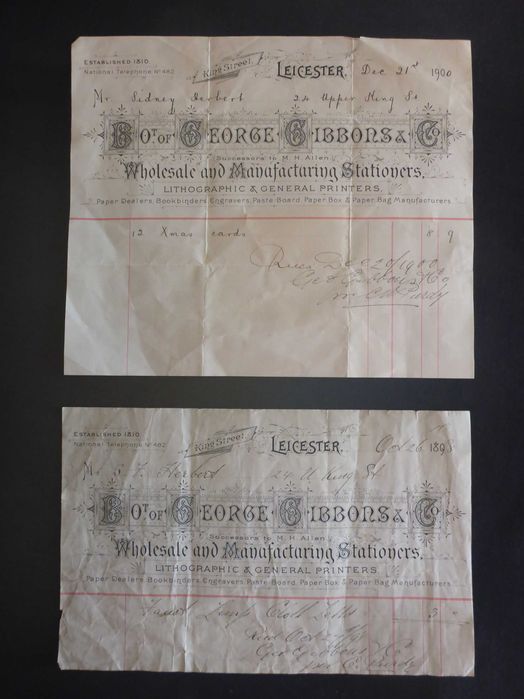 ESTABLISHED 1810.
National Telephone No 482.
King Street,
LEICESTER, Dec 21st 1900
Mr Sidney Herbert 24 Upper King St
Bot OF GEORGE GIBBONS & Co
Successors to M. H. Allen
Wholesale and Manufacturing Stationers,
LITHOGRAPHIC & GENERAL PRINTERS.
Paper Dealers, Bookbinders, Engravers, Paste-Board, Paper Box & Paper Bag Manufacturers
12 Xmas cards 8 9
Dec 20/1900
Geo Gibbons & Co
Purdy
ESTABLISHED 1810.
National Telephone No 482.
King Street,
LEICESTER, Oct 26 1898
Mr Herbert 24 U King St
Bot OF GEORGE GIBBONS & Co
Successors to M. H. Allen
Wholesale and Manufacturing Stationers,
LITHOGRAPHIC & GENERAL PRINTERS.
Paper Dealers, Bookbinders, Engravers, Paste-Board, Paper Box & Paper Bag Manufacturers
3
Geo Gibbons & Co
Purdy